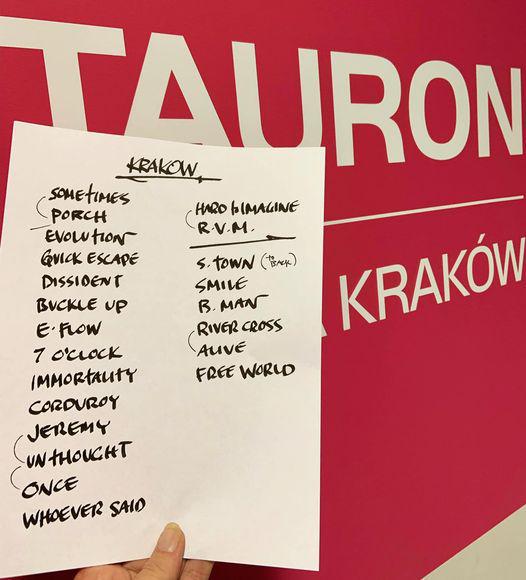 TAURON
KRAKÓW
KRAKOW
SOMETIMES
PORCH
EVOLUTION
QUICK ESCAPE
DISSIDENT
BUCKLE UP
E. FLOW
7 O'CLOCK
IMMORTALITY
CORDUROY
JEREMY
UNTHOUGHT
ONCE
WHOEVER SAID
HARD to IMAGINE
R.V.M.
S. TOWN (to BACK)
SMILE
B. MAN
RIVER CROSS
ALIVE
FREE WORLD